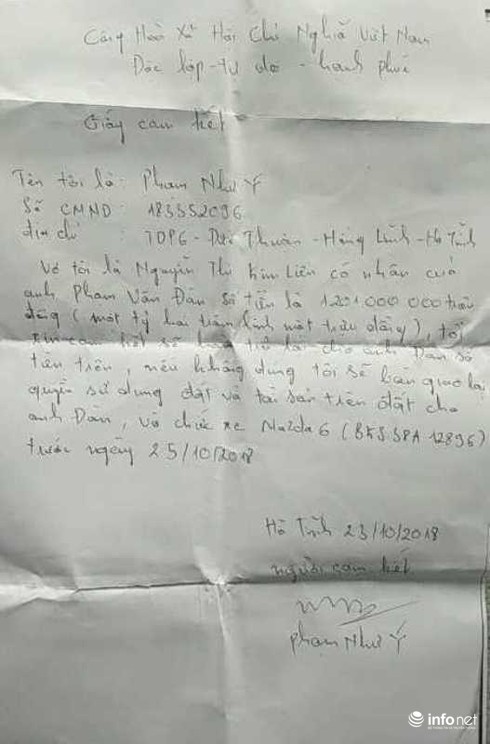 Cộng Hoà Xã Hội Chủ Nghĩa Việt Nam
Độc lập - tự do - hạnh phúc
Giấy cam kết
Tên tôi là: Phạm Như Ý
Số CMND: 183552096
địa chỉ: TDP6 - Đức Thuận - Hồng Lĩnh - Hà Tĩnh
Vợ tôi là Nguyễn Thị Kim Liên có nhân của
anh Phạm Văn Đàn số tiền là 1201000000 triệu
đồng (một tỷ hai trăm linh một triệu đồng), tôi
xin cam kết sẽ trả lại cho anh Đàn số
tiền trên, nếu không đúng tôi sẽ bàn giao lại
quyền sử dụng đất và tài sản trên đất cho
anh Đàn, và chiếc xe Mazda 6 (BKS 38A 12896)
trước ngày 25/10/2018
Hà Tĩnh 23/10/2018
người cam kết
Phạm Như Ý
infonet